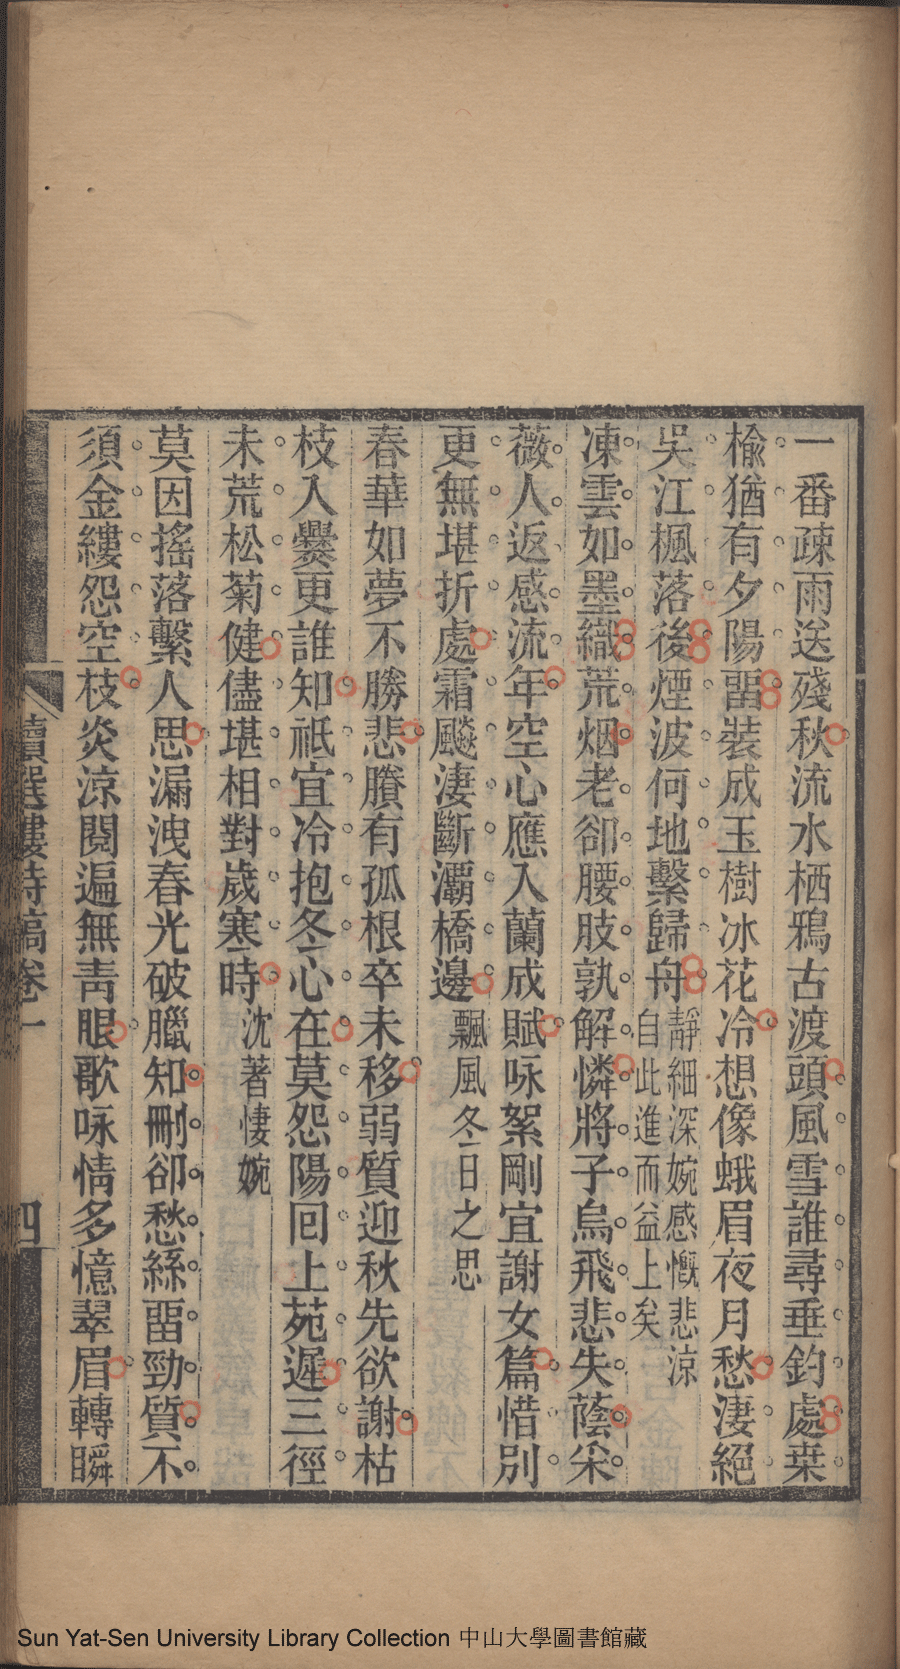 一番疎雨送殘秋流水栖鴉古渡頭風雪誰尋垂釣處桒
榆猶有夕陽畱裝成玉樹冰花冷想像蛾眉夜月愁淒絕
吳江楓落後煙波何地繫歸舟
靜細深婉感慨悲涼
自此進而益上矣
凍雲如墨織荒烟老卻腰肢孰解憐將子烏飛悲失蔭采
薇人返感流年空心應入蘭成賦咏絮剛宜謝女篇惜別
更無堪折處霜飈淒斷灞橋邊
飄風冬日之思
春華如夢不勝悲賸有孤根卒未移弱質迎秋先欲謝枯
枝入爨更誰知祇宜冷抱冬心在莫怨陽回上苑遲三徑
未荒松菊健儘堪相對歲寒時
沈著悽婉
莫因搖落繫人思漏洩春光破臘知刪卻愁絲畱勁質不
須金縷怨空枝炎涼閱遍無靑眼歌咏情多憶翠眉轉瞬
讀選樓詩稿卷一
四
Sun Yat-Sen University Library Collection 中山大學圖書館藏